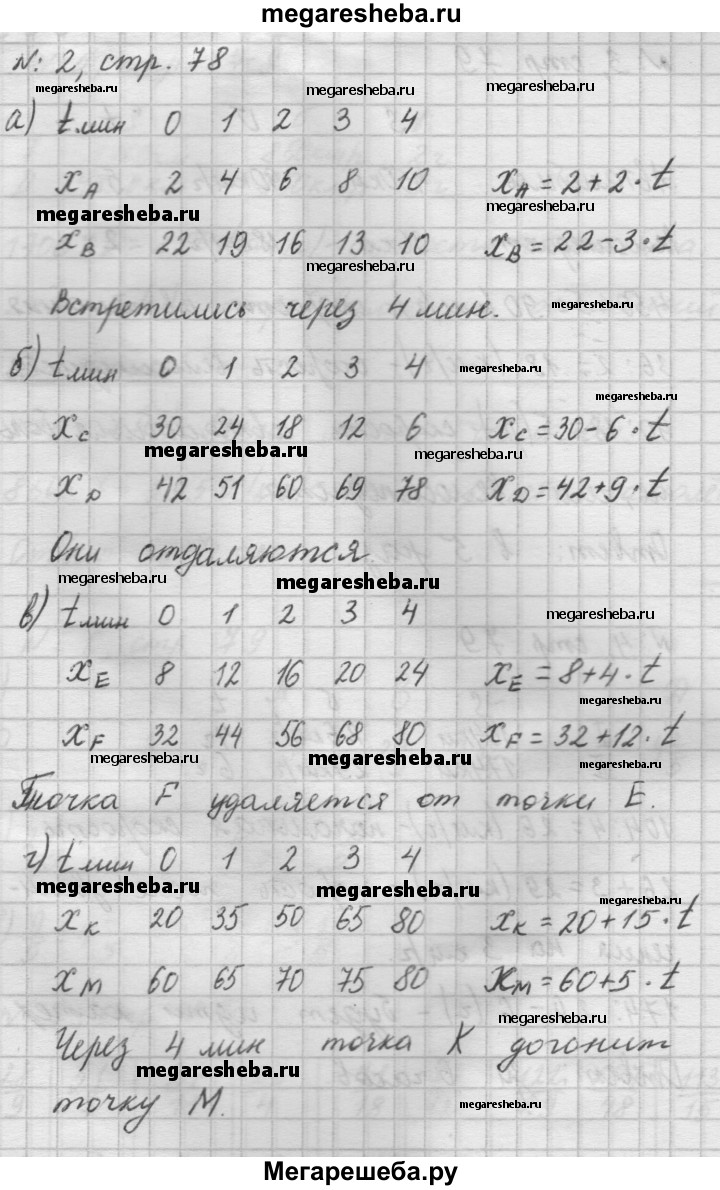 megaresheba.ru
№: 2, стр. 78
megaresheba.ru megaresheba.ru megaresheba.ru
а) t мин 0 1 2 3 4
x A 2 4 6 8 10 x A = 2 + 2 · t
megaresheba.ru megaresheba.ru
x B 22 19 16 13 10 x B = 22 - 3 · t
megaresheba.ru
Встретились через 4 мин. megaresheba.ru
б) t мин 0 1 2 3 4 megaresheba.ru
megaresheba.ru
x C 30 24 18 12 6 x C = 30 - 6 · t
megaresheba.ru megaresheba.ru
x D 42 51 60 69 78 x D = 42 + 9 · t
Они отдаляются
megaresheba.ru megaresheba.ru
в) t мин 0 1 2 3 4 megaresheba.ru
x E 8 12 16 20 24 x E = 8 + 4 · t
megaresheba.ru
x F 32 44 56 68 80 x F = 32 + 12 · t
megaresheba.ru megaresheba.ru megaresheba.ru
Точка F удаляется от точки E.
г) t мин 0 1 2 3 4
megaresheba.ru megaresheba.ru megaresheba.ru
x K 20 35 50 65 80 x K = 20 + 15 · t
x M 60 65 70 75 80 x M = 60 + 5 · t
megaresheba.ru
Через 4 мин точка K догонит
megaresheba.ru
точку M. megaresheba.ru
Мегарешеба.ру